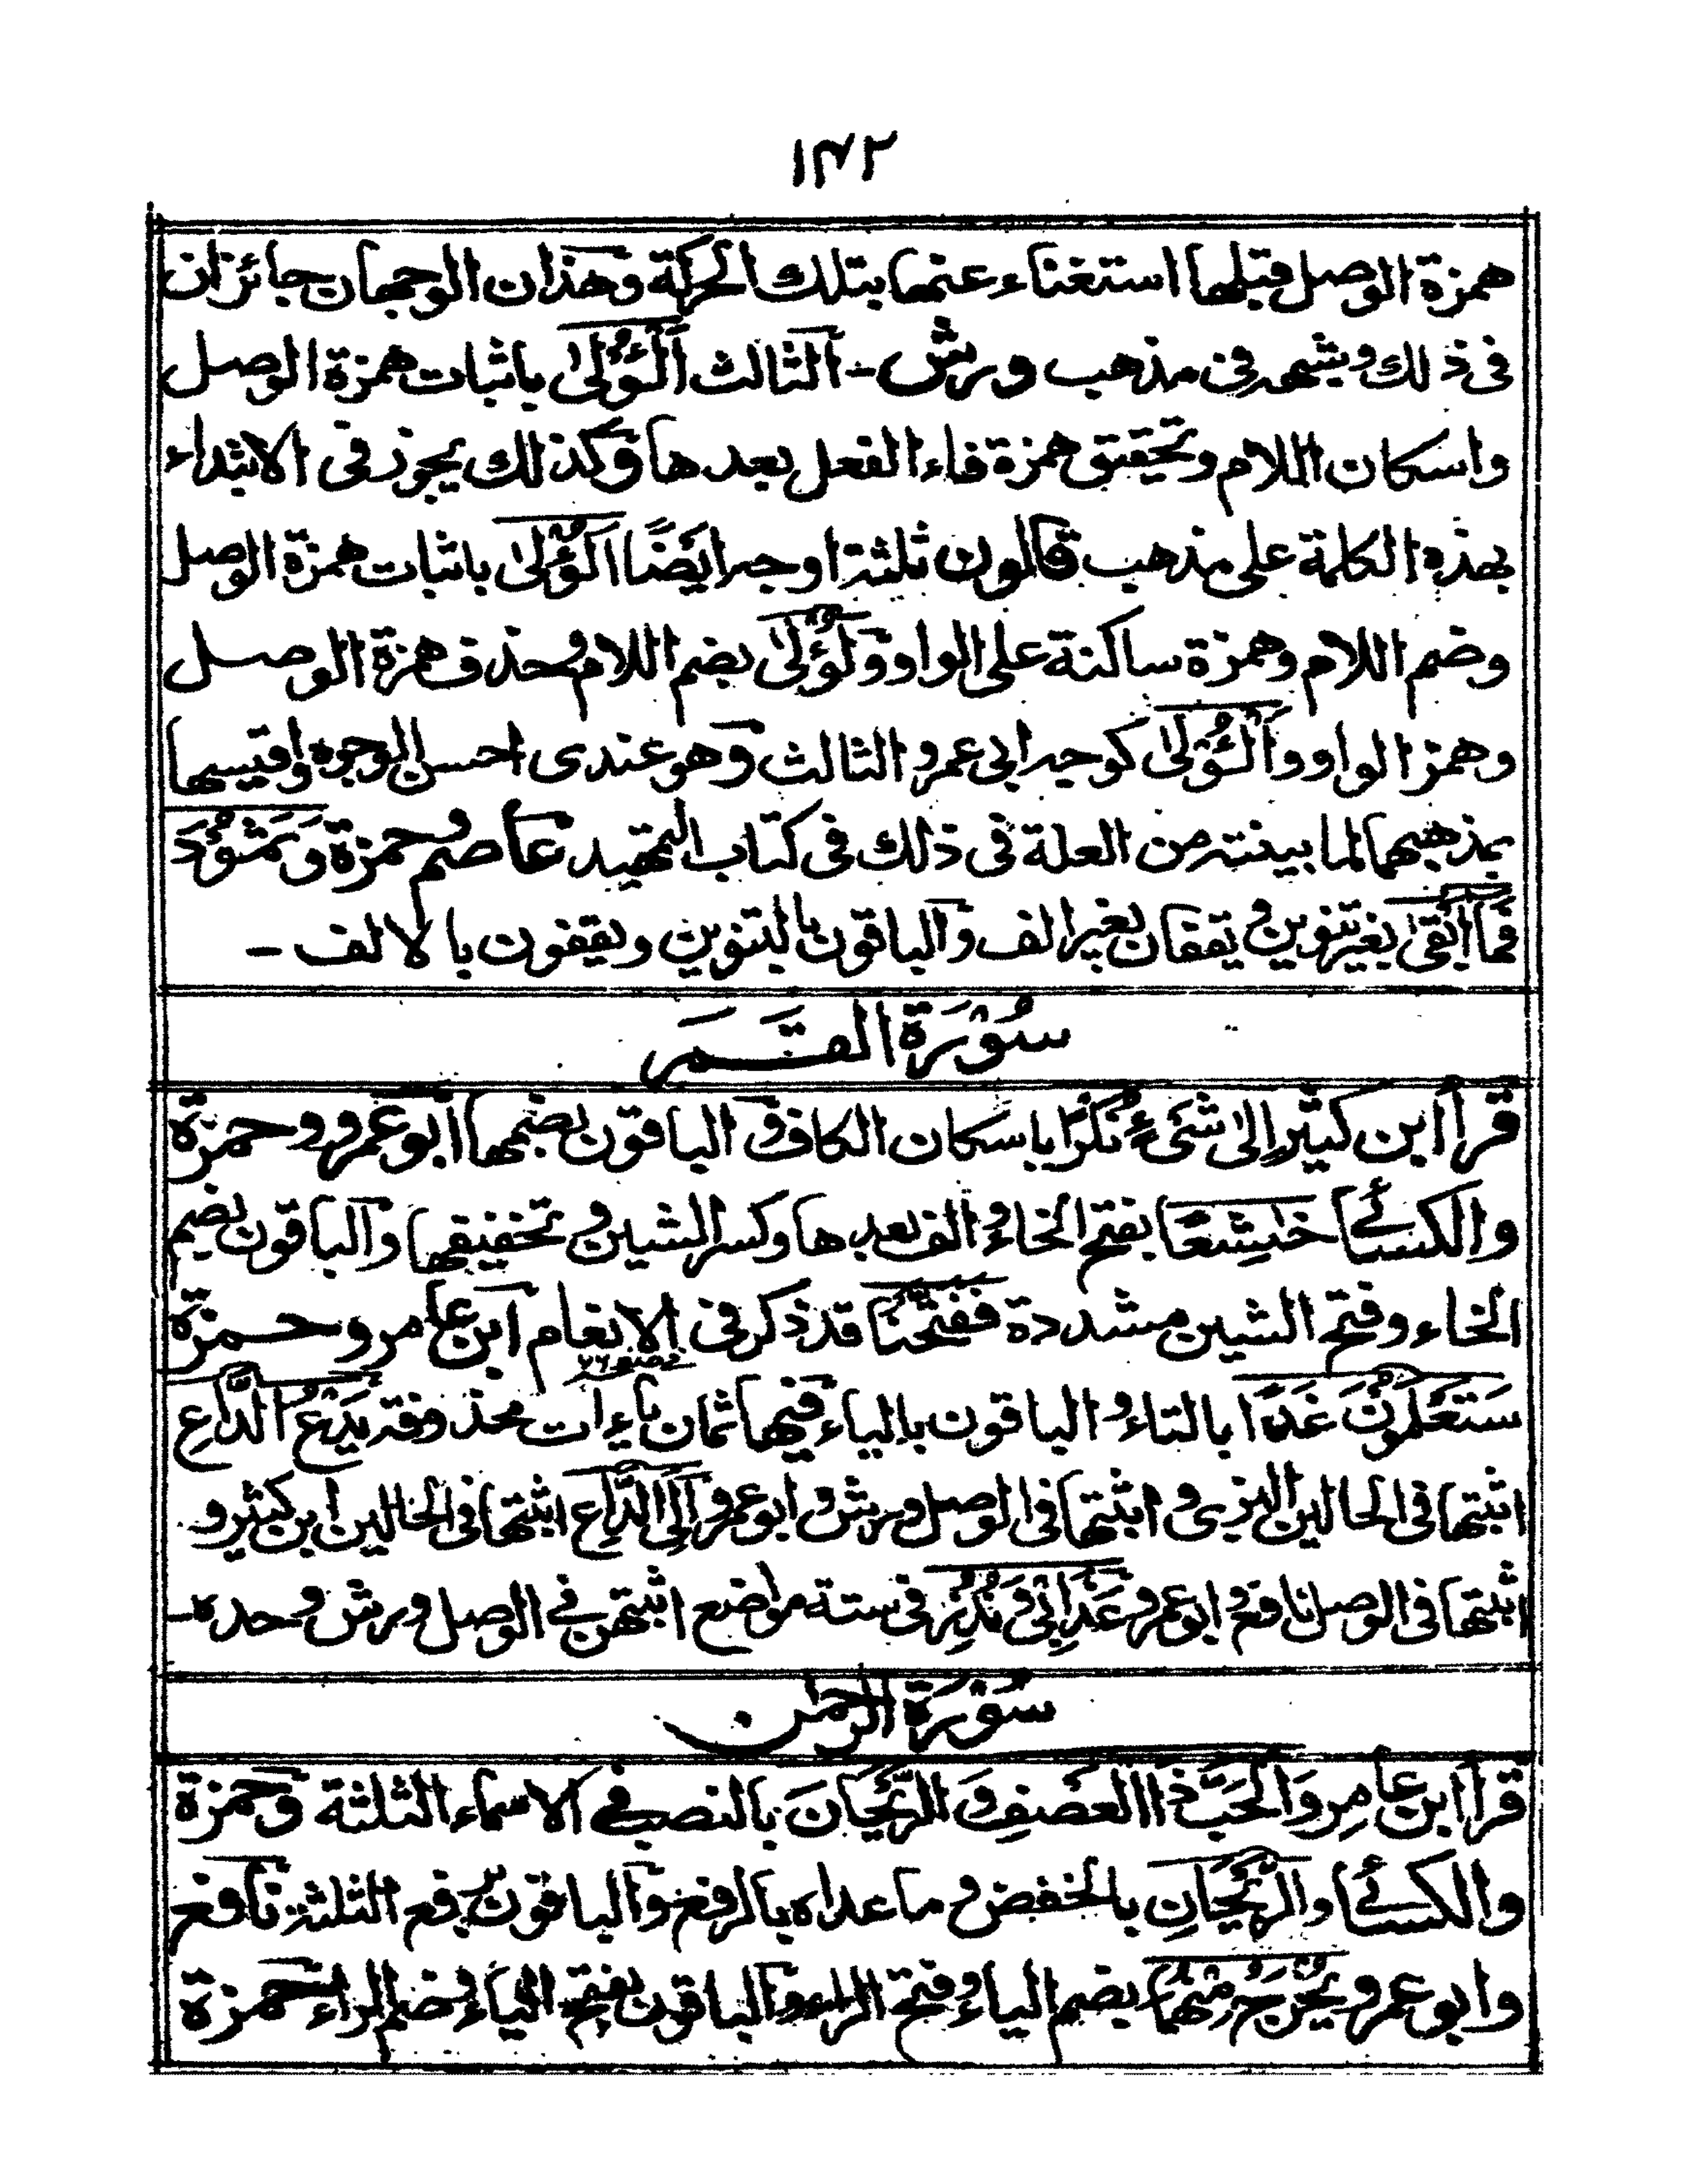 ١٤٢
همزة الوصل قبلها استغناء عنها بتلك الحركة وهذان الوجهان جائزان
فى ذلك وشبهه فى مذهب ورش - الثالث اَلْؤُلىٰ باثبات همزة الوصل
واسكان اللام وتحقيق همزة فاء الفعل بعدها وكذلك يجوز فى الابتداء
بهذه الكلمة على مذهب قالون ثلثة اوجه ايضًا اَلُؤْلىٰ باثبات همزة الوصل
وضم اللام وهمزة ساكنة على الواو ولُؤْلىٰ بضم اللام وحذف همزة الوصل
وهمز الواو واَلْؤُلىٰ كوجه ابى عمرو الثالث وهو عندى احسن الوجوه واقيسها
بمذهبهما لما بينته من العلة فى ذلك فى كتاب التمهيد عاصم وحمزة وَثَمُوْدَ
فَمَا اَبْقىٰ بغير تنوين ويقفان بغير الف والباقون بالتنوين ويقفون بالالف -
سُوْرَة القَمَر
قرأ ابن كثير اِلىٰ شَىْءٍ نُكْرٍ باسكان الكاف والباقون بضمها ابو عمرو وحمزة
والكسائى خَاشِعًا بفتح الخاء والف بعدها وكسر الشين وتخفيفها والباقون بضم
الخاء وفتح الشين مشددة فَفَتَحْنَا قد ذكر فى الانعام ابن عامر وحمزة
سَتَعْلَمُوْنَ غَدًا بالتاء والباقون بالياء فيها ثمان ياءات محذوفة يَدْعُ الدَّاعِ
اثبتها فى الحالين البزى واثبتها فى الوصل ورش وابو عمرو اِلَى الدَّاعِ اثبتها فى الحالين ابن كثير و
اثبتها فى الوصل نافع وابو عمرو عَذَابِىْ وَنُذُرِ فى ستة مواضع اثبتهن فى الوصل ورش وحده -
سُوْرَة الرحمٰن
قرأ ابن عامر وَالْحَبَّ ذَا الْعَصْفِ وَالرَّيْحَانَ بالنصب فى الاسماء الثلثة وحمزة
والكسائى والرَّيْحَانِ بالخفض وما عداه بالرفع والباقون برفع الثلثة نافع
وابو عمرو يُخْرَجُ مِنْهُمَا بضم الياء وفتح الراء والباقون بفتح الياء وضم الراء حمزة